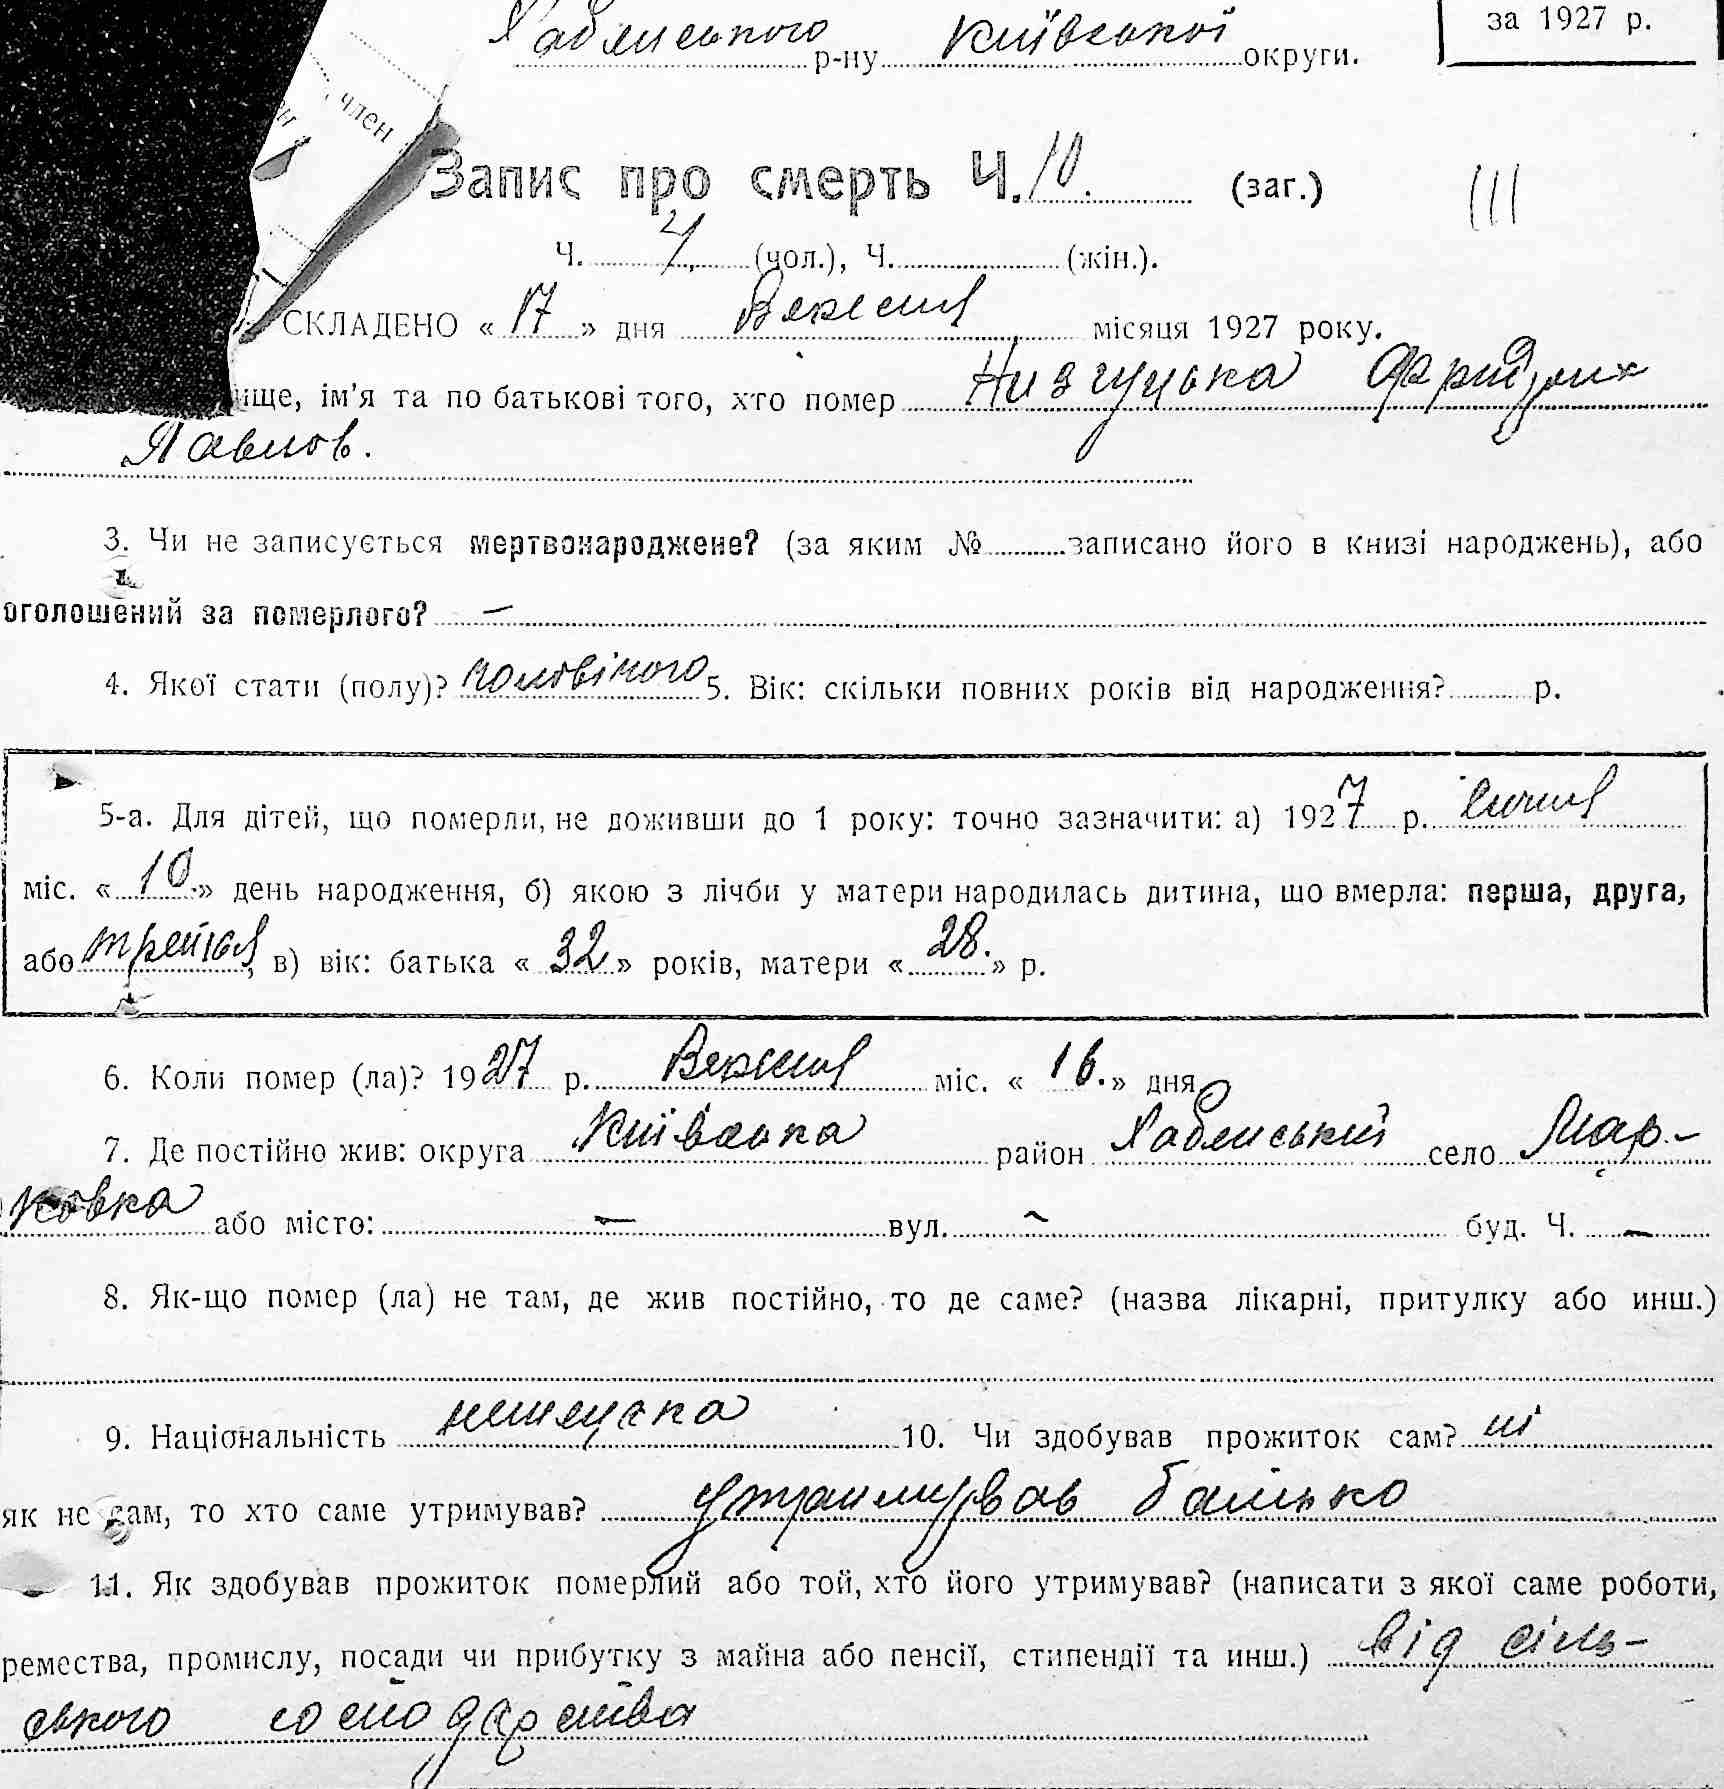 Хабенського р-ну Київської округи.
за 1927 р.
член
Запис про смерть Ч. 10. (заг.) III
Ч. 7, (чол.), Ч. (жін.).
СКЛАДЕНО « 17 » дня Вересня місяця 1927 року.
ище, ім'я та по батькові того, хто помер
Павлов.
3. Чи не записується мертвонароджене? (за яким № записано його в книзі народжень), або
оголошений за померлого? –
4. Якої стати (полу)? чоловічого 5. Вік: скільки повних років від народження? р.
5-а. Для дітей, що померли, не доживши до 1 року: точно зазначити: а) 1927 р. Січня
міс. « 10 » день народження, б) якою з лічби у матери народилась дитина, що вмерла: перша, друга,
або третя, в) вік: батька « 32 » років, матери « 28. » р.
6. Коли помер (ла)? 1927 р. Вересня міс. « 16. » дня
7. Де постійно жив: округа Київська район Хабенський село Мар-
ковка або місто: – вул. – буд. Ч. –
8. Як-що помер (ла) не там, де жив постійно, то де саме? (назва лікарні, притулку або инш.)
9. Національність 10. Чи здобував прожиток сам? ні
як не сам, то хто саме утримував? утримував батько
11. Як здобував прожиток померлий або той, хто його утримував? (написати з якої саме роботи,
ремества, промислу, посади чи прибутку з майна або пенсії, стипендії та инш.) від сіль-
ського господарства